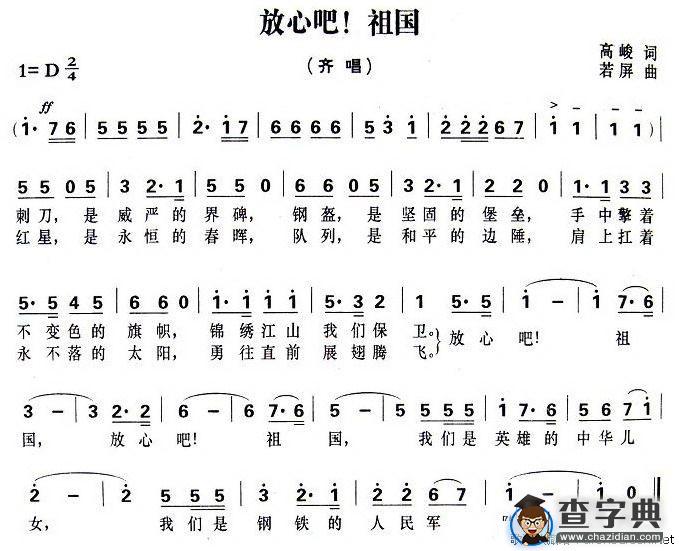 放心吧！祖国
1= D 2/4
（齐 唱）
高 峻 词
若 屏 曲
ff
( 1· 7 6 | 5 5 5 5 | 2· 1 7 | 6 6 6 6 | 5 3 1 | 2 2 2 6 7 | 1 1 | 1 1 )
5 5 0 5 | 3 2· 1 | 5 5 0 5 | 3 2· 1 | 2 2 0 | 1 1 3 3
刺刀，是 威严的 界碑，钢盔，是 坚固的 堡垒，手中擎着
红星，是 永恒的 春晖，队列，是 和平的 边陲，肩上扛着
5· 5 4 5 | 6 6 0 | 1· 1 1 1 | 5· 3 2 | 1 5· 5 | 1 - | 1 7· 6
不变色的 旗帜，锦绣江山 我们保 卫。放心吧！祖
永不落的 太阳，勇往直前 展翅腾 飞。
3 - | 3 2· 2 | 6 - | 6 7· 6 | 5 - | 5 5 5 5 | 5 1 1 1 | 5 6 7 1
国，放心吧！祖 国，我们是 英雄的 中华儿
2 - | 2 - | 5 5 5 | 6 2 2 2
女，我们是 钢铁的 人民军
查字典
www.chazidian.com